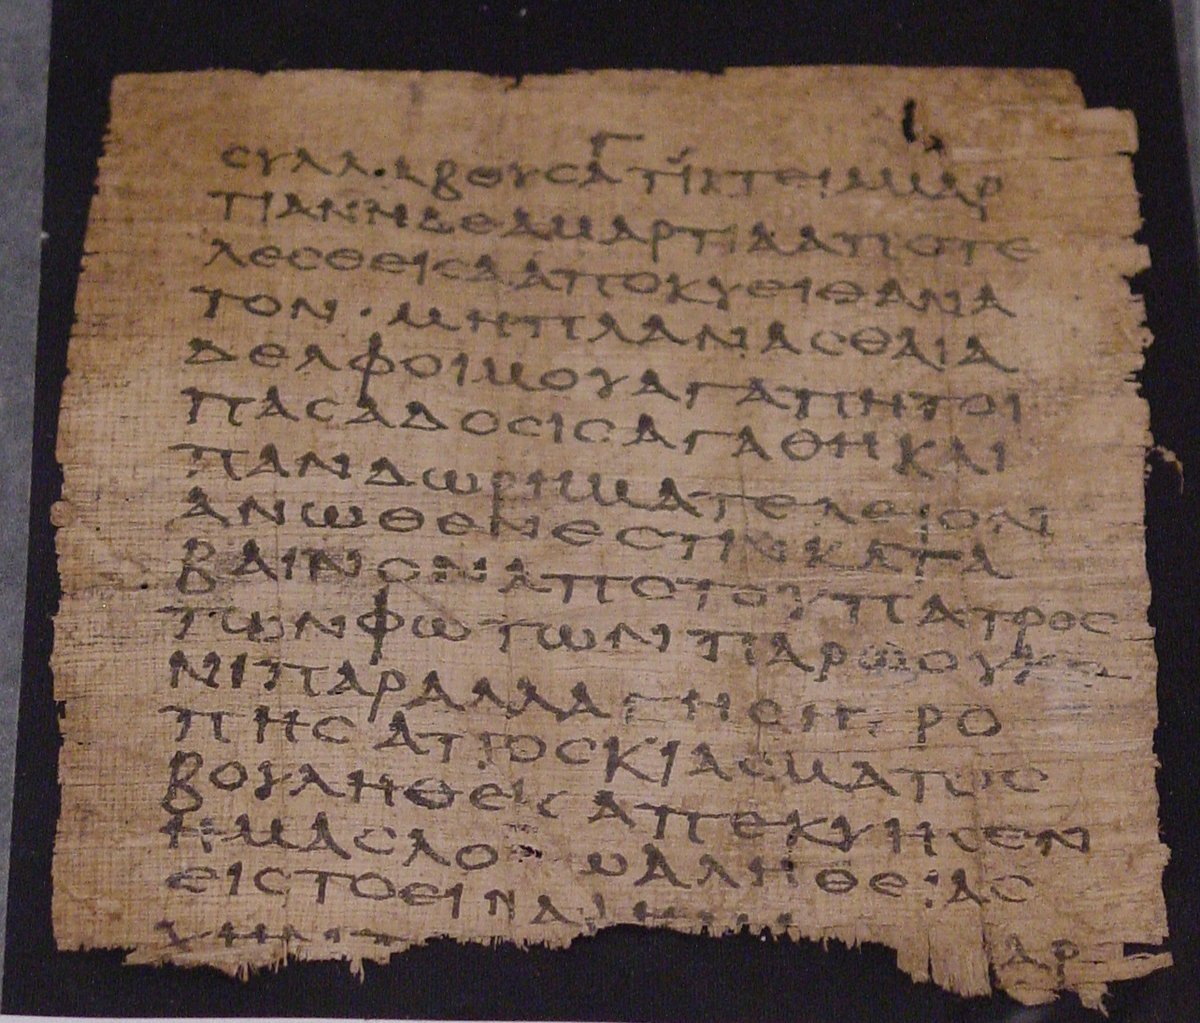 Γ
ϹΥΛΛΑΒΟΥϹΑΤΙΚΤΕΙΑΜΑΡ
ΤΙΑΝΗΔΕΑΜΑΡΤΙΑΑΠΟΤΕ
ΛΕϹΘΕΙϹΑΑΠΟΚΥΕΙΘΑΝΑ
ΤΟΝ·ΜΗΠΛΑΝΑϹΘΑΙΑ
ΔΕΛΦΟΙΜΟΥΑΓΑΠΗΤΟΙ
ΠΑϹΑΔΟϹΙϹΑΓΑΘΗΚΑΙ
ΠΑΝΔΩΡΗΜΑΤΕΛΕΙΟΝ
ΑΝΩΘΕΝΕϹΤΙΝΚΑΤΑ
ΒΑΙΝΟΝΑΠΟΤΟΥΠΑΤΡΟϹ
ΤΩΝΦΩΤΩΝΠΑΡΩΟΥΚΕ
ΝΙΠΑΡΑΛΛΑΓΗϹΗΤΡΟ
ΠΗϹΑΠΟϹΚΙΑϹΜΑΤΟϹ
ΒΟΥΛΗΘΕΙϹΑΠΕΚΥΗϹΕΝ
ΗΜΑϹΛΟΓΩΑΛΗΘΕΙΑϹ
ΕΙϹΤΟΕΙΝΑΙ
ΑΡ